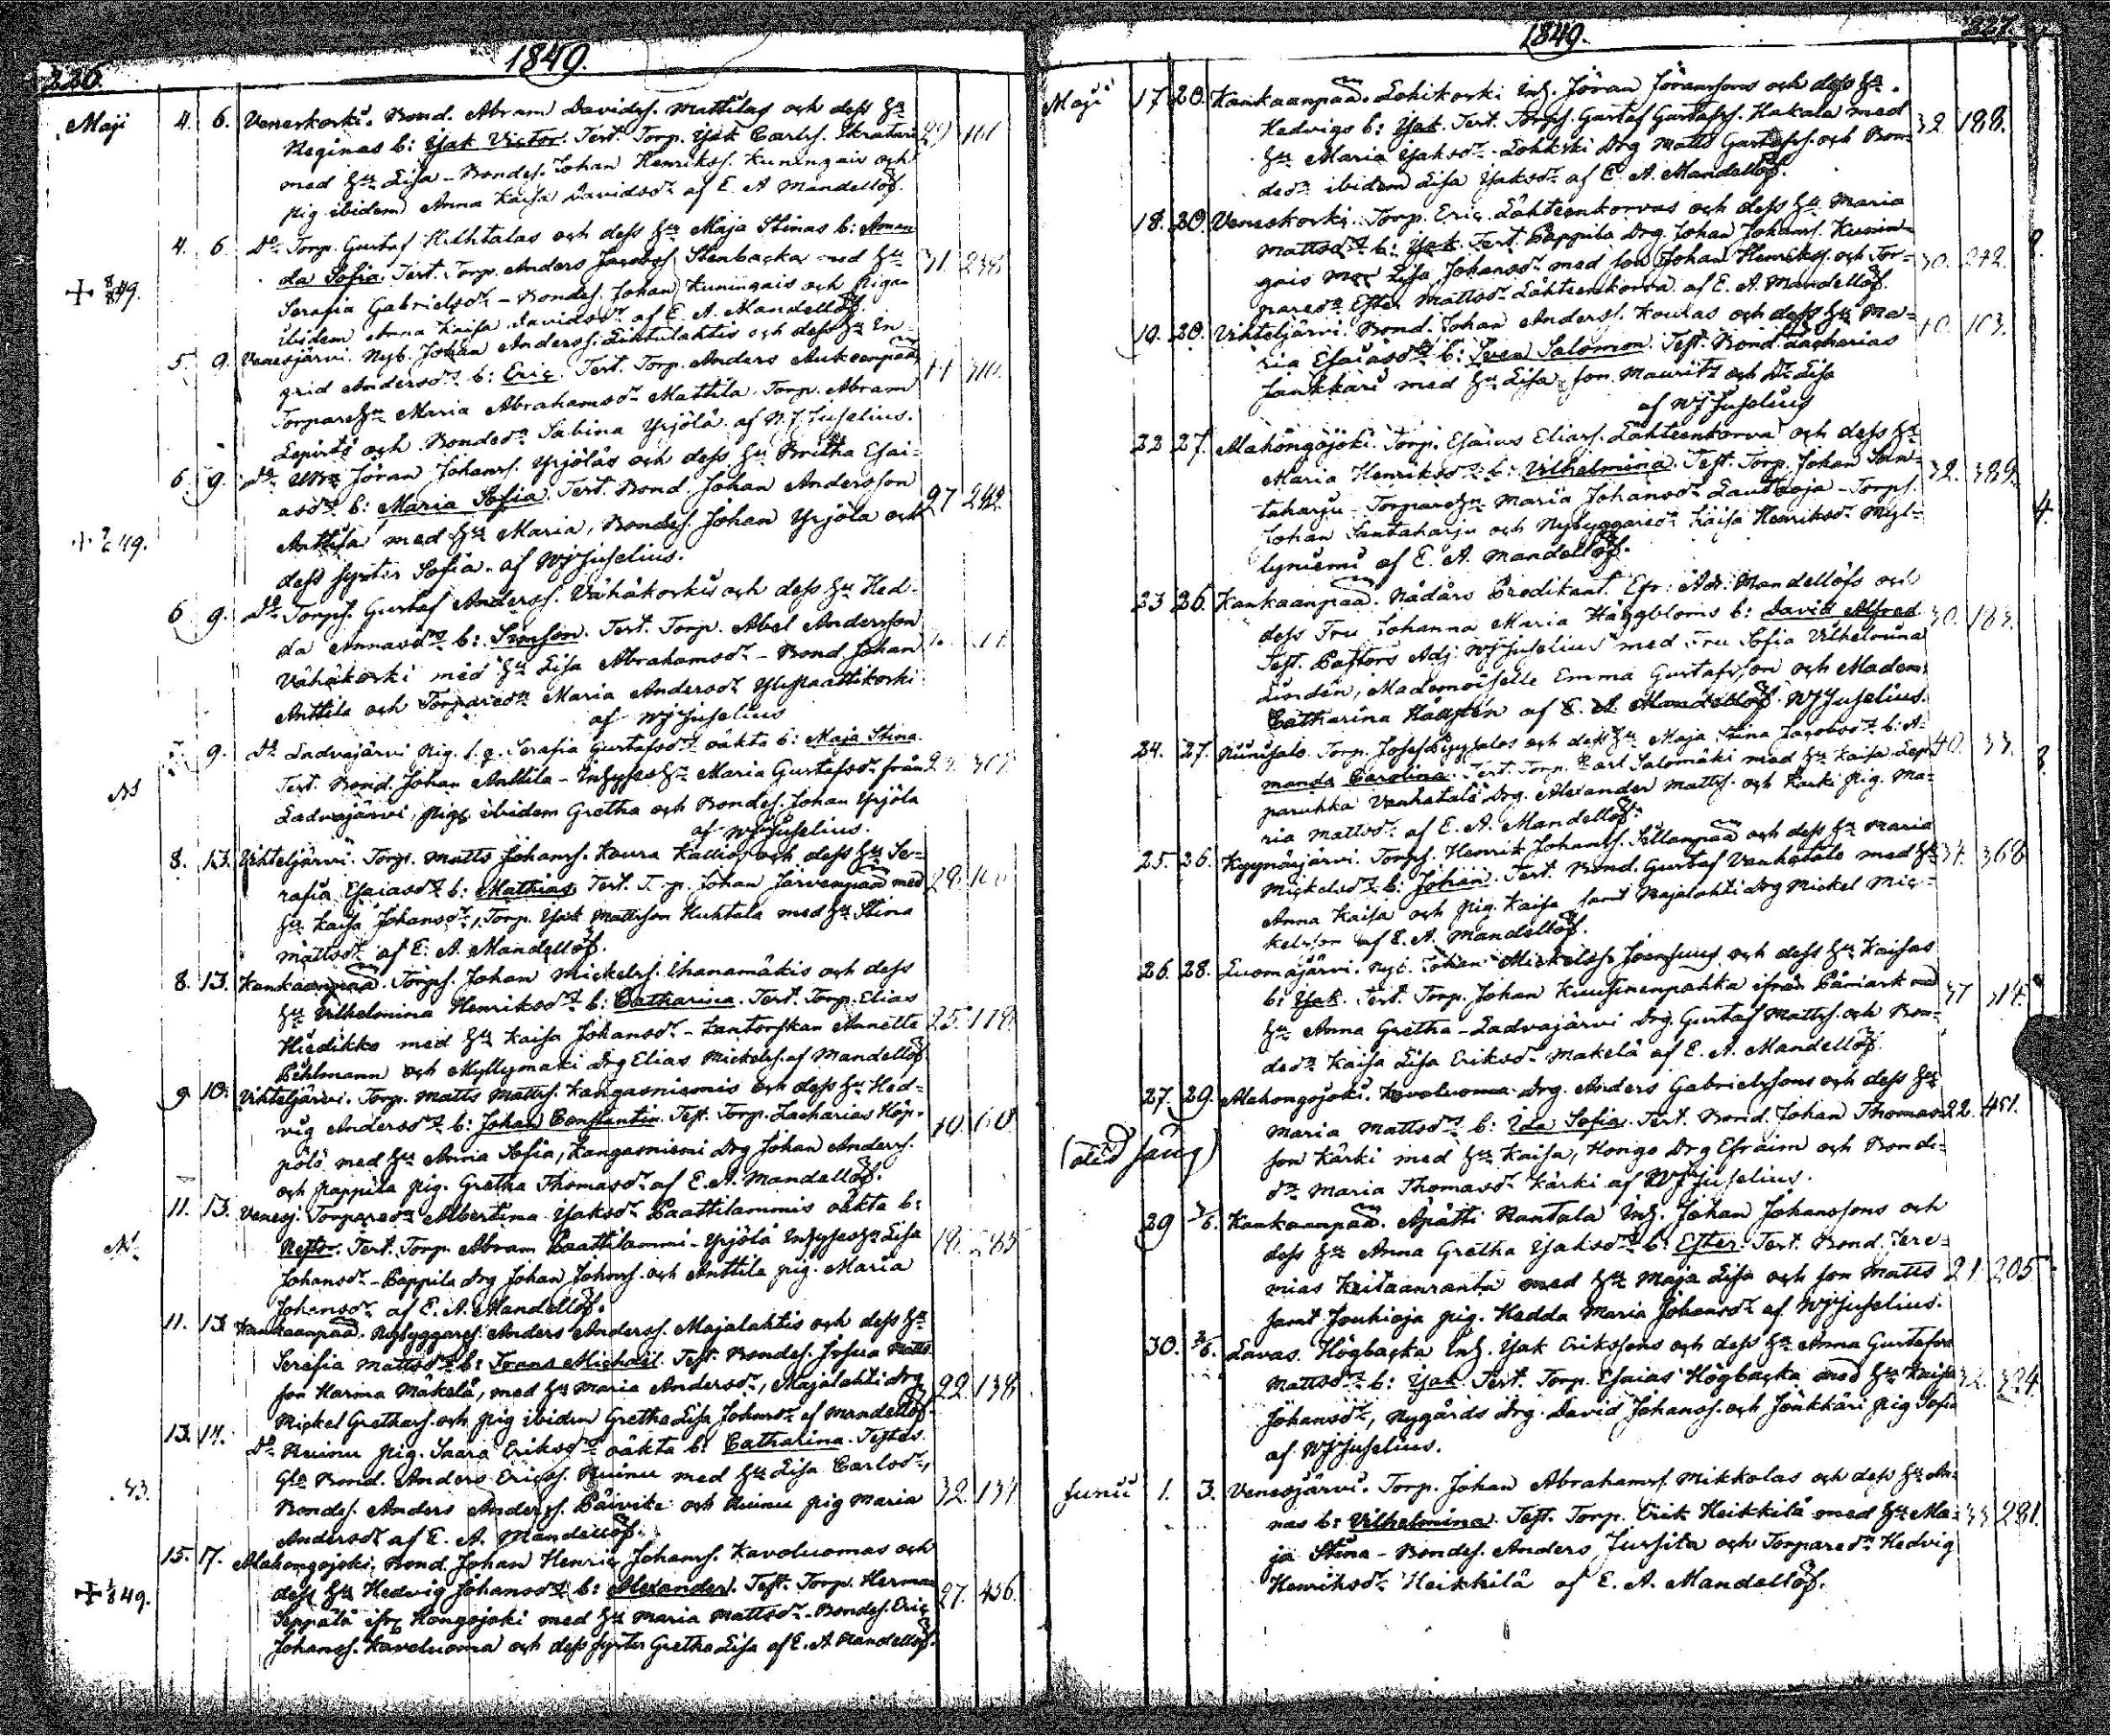 226.
1849.
Maji 4. 6. Veneskoski. Bond. Abram Davidss. Mattilas och dess Hu
Reginas b: Isak Victor. Test. Torp. Isak Carlss.
med Hu Lisa - Bondes. Johan Henrikss. Kuningais och
pig. ibidem Anna Kaisa Davidsdr af E. A. Mandellöf.
4. 6. Do Torp. Gustaf Huhtalas och dess Hu Maja Stinas b: Aman-
+ 8/8 49. da Sofia. Test. Torp. Anders Jacobss. Stenbacka med Hu 31. 238
Serafia Gabrielsdr - Bondes. Johan Kuningais och piga
ibidem Anna Kaisa Davidsdr af E. A. Mandellöf.
5. 9. Venesjärvi. Nyb. Johan Anderss. Luhtalahtis och dess Hu In-
grid Andersdrs b: Eric. Test. Torp. Anders Aukeenpää,
Torpare Hu Maria Abrahamsdr Mattila. Torp. Abram
Lepistö och Bondedr Sabina Yrjölä. af W J Juselius.
6. 9. Do Jöran Johanss. Yrjöläs och dess Hu Britha Esai-
asdrs b: Maria Sofia. Test. Bond. Johan Andersson 27 242.
49. Anttila med Hu Maria, Bondes. Johan Yrjölä och
dess syster Sofia. af W J Juselius.
6 9. Do Torps. Gustaf Anderss. Vähäkoskis och dess Hu Hed-
da Annasdrs b: Simson. Test. Torp. Abel Andersson
Vähäkoski med Hu Lisa Abrahamsdr - Bond. Johan
Anttila och Torparedr Maria Andersdr Ylipaattikoski
af W J Juselius
9. Do Ladvajärvi pig. Serafia Gustafsdrs oäkta b: Maja Stina.
Test. Bond. Johan Anttila - Inhyses Hu Maria Gustafsdr från
Ladvajärvi, pig. ibidem Gretha och Bondes. Johan Yrjölä
af W J Juselius.
8. 13. Vihteljärvi. Torp. Matts Johanss. Koura Kallios och dess Hu Se-
rafia Esaiasdrs b: Mathias. Test. Torp. Johan Järvenpää med
Hu Kaisa Johansdr, Torp. Isak Mattsson Huhtala med Hu Stina
Mattsdr af E. A. Mandellöf.
8. 13. Kankaanpää. Torps. Johan Mickelss. Ihanamäkis och dess
Hu Vilhelmina Henriksdrs b: Catharina. Test. Torp. Elias
Hiedikko med Hu Kaisa Johansdr - Kantorskan Annette 25. 118.
Pehlmann och Myllymäki drg Elias Mickelss. af Mandellöf
9 10. Vihteljärvi. Torp. Matts Mattss. Kangasniemis och dess Hu Hed-
vig Andersdrs b: Johan Constantin. Test. Torp. Zacharias Höp-
pölö med Hu Anna Sofia, Kangasniemi Drg Johan Anderss. 40. 60.
och Pappila pig. Gretha Thomasdr af E. A. Mandellöf.
11. 13. Venesj. Torparedr Albertina Isaksdr Paattilammis oäkta b:
Nestor. Test. Torp. Abram Paattilammi - Yrjölä Inhyses Hu Lisa
Johansdr - Pappila drg Johan Johanss. och Anttila pig. Maria
Johansdr af E. A. Mandellöf.
11. 13. Kankaanpää. Nybyggares. Anders Anderss. Majalahtis och dess Hu
Serafia Mattsdrs b: Frans Michael. Test. Bondes. Josua Matts-
son Harma Mäkelä, med Hu Maria Andersdr, Majalahti drg 22. 138.
Mickel Grethass. och pig ibidem Gretha Lisa Johansdr af Mandellöf.
13. 14. Do Ruinu pig. Saara Eriksdrs oäkta b: Catharina. Testes.
Gla Bond. Anders Ericss. Ruinu med Hu Lisa Carlsdr,
Bondes. Anders Anderss. Päivike och Ruinu pig Maria 32. 134
Andersdr af E. A. Mandellöf.
15. 17. Alahongojoki. Bond. Johan Henric Johanss. Kavoluomas och
+ 49. dess Hu Hedvig Johansdrs b: Alexander. Test. Torp. Herman 27. 456.
Seppälä ifr. Hongojoki med Hu Maria Mattsdr - Bondes. Eric
Johanss. Kavoluoma och dess syster Gretha Lisa af E. A. Mandellöf.
1849. 227.
Maji 17 20. Kankaanpää. Lohikoski Inh. Jöran Jöranssons och dess Hu
Hedvigs b: Isak. Test. Torps. Gustaf Gustafss. Hakala med 32. 188.
Hu Maria Isaksdr - Lohikoski Drg Matts Gustafss. och Bon-
dedr ibidem Lisa Isaksdr af E. A. Mandellöf.
18. 20. Veneskoski. Torp. Eric Lähteenkorvas och dess Hu Maria
Mattsdrs b: Isak. Test. Pappila Drg. Johan Johanss. Kunin-
gais Mor Lisa Johansdr med son Johan Henrikss. och Tor- 30. 242.
paredr Ester Mattsdr Lähteenkorva af E. A. Mandellöf.
19. 20. Vihteljärvi. Bond. Johan Anderss. Koulas och dess Hu Ma- 10. 103.
ria Esaiasdrs b: Sven Salomon. Test. Bond. Zacharias
Jankkari med Hu Lisa, son Mauritz och Dr Lisa
af W J Juselius
22 27. Alahongojoki. Torp. Esaias Eliass. Lähteenkorva och dess Hu
Maria Henriksdrs b: Vilhelmina. Test. Torp. Johan San- 32. 389.
taharju - Torpare Hu Maria Johansdr Lauttoja - Torps.
Johan Santaharju och Nybyggaredr Kaisa Henriksdr Myl-
lyniemi af E. A. Mandellöf.
23 26. Kankaanpää. Nådårs Predikant. Efr: Adr. Mandellöfs och
dess Fru Johanna Maria Häggbloms b: David Alfred. 30. 183.
Test. Pastors Adj. W J Juselius med Fru Sofia Vilhelmina
Lundén, Mademoiselle Emma Gustafsson och Madem.
Catharina Häggstén af E. A. Mandellöf. W J Juselius.
24. 27. Niinisalo. Torp. Josef och dess Hu Maja Stina Jacobsdrs b: A-
manda Carolina. Test. Torp. Karl Salomäki med Hu Kaisa Lep- 40. 33.
parukka Vanhatalo Drg. Alexander Mattss. och Karki pig. Ma-
ria Mattsdr af E. A. Mandellöf.
25. 26. Kyynärjärvi. Torps. Henrik Johanss. Sillanpää och dess Hu Maria
Mickelsdrs b: Johan. Test. Bond. Gustaf Vanhatalo med Hu 34. 368
Anna Kaisa och pig. Kaisa samt Majalahti drg Mickel Mic-
kelsson af E. A. Mandellöf.
26. 28. Luomajärvi. Nyb. Johan Mickelss. Joensuus och dess Hu Kaisas
b: Isak. Test. Torp. Johan Kuusinenpakka ifrån Påmark med 37 314.
Hu Anna Gretha - Ladvajärvi Drg. Gustaf Mattss. och Bon-
dedr Kaisa Lisa Eriksdr Makelä af E. A. Mandellöf.
27. 29. Alahongojoki. Kavoluoma drg. Anders Gabrielssons och dess Hu
Maria Mattsdrs b: Ida Sofia. Test. Bond. Johan Thomas- 22. 451.
son Kärki med Hu Kaisa, Hongo Drg Efraim och Bonde-
dr Maria Thomasdr Kärki af W J Juselius.
29 1/6. Kankaanpää. Apätti Rantala Inh. Johan Johanssons och
dess Hu Anna Gretha Isaksdrs b: Ester. Test. Bond. Jere-
mias Keitaanranta med Hu Maja Lisa och son Matts 21. 205
samt Jouhioja pig. Hedda Maria Johansdr af W J Juselius.
30. 3/6. Lavas. Högbacka Inh. Isak Erikssons och dess Hu Anna Gustafva
Mattsdrs b: Isak. Test. Torp. Esaias Högbacka med Hu Kaisa 32. 324.
Johansdr, Nygårds drg. David Johanss. och Jönkkäri pig Sofia
af W J Juselius.
Junii 1. 3. Venesjärvi. Torp. Johan Abrahamss. Mikkolas och dess Hu An-
nas b: Vilhelmina. Test. Torp. Erik Heikkilä med Hu Ma- 33 281.
ja Stina - Bondes. Anders Jussila och Torparedr Hedvig
Henriksdr Heikkilä af E. A. Mandellöf.